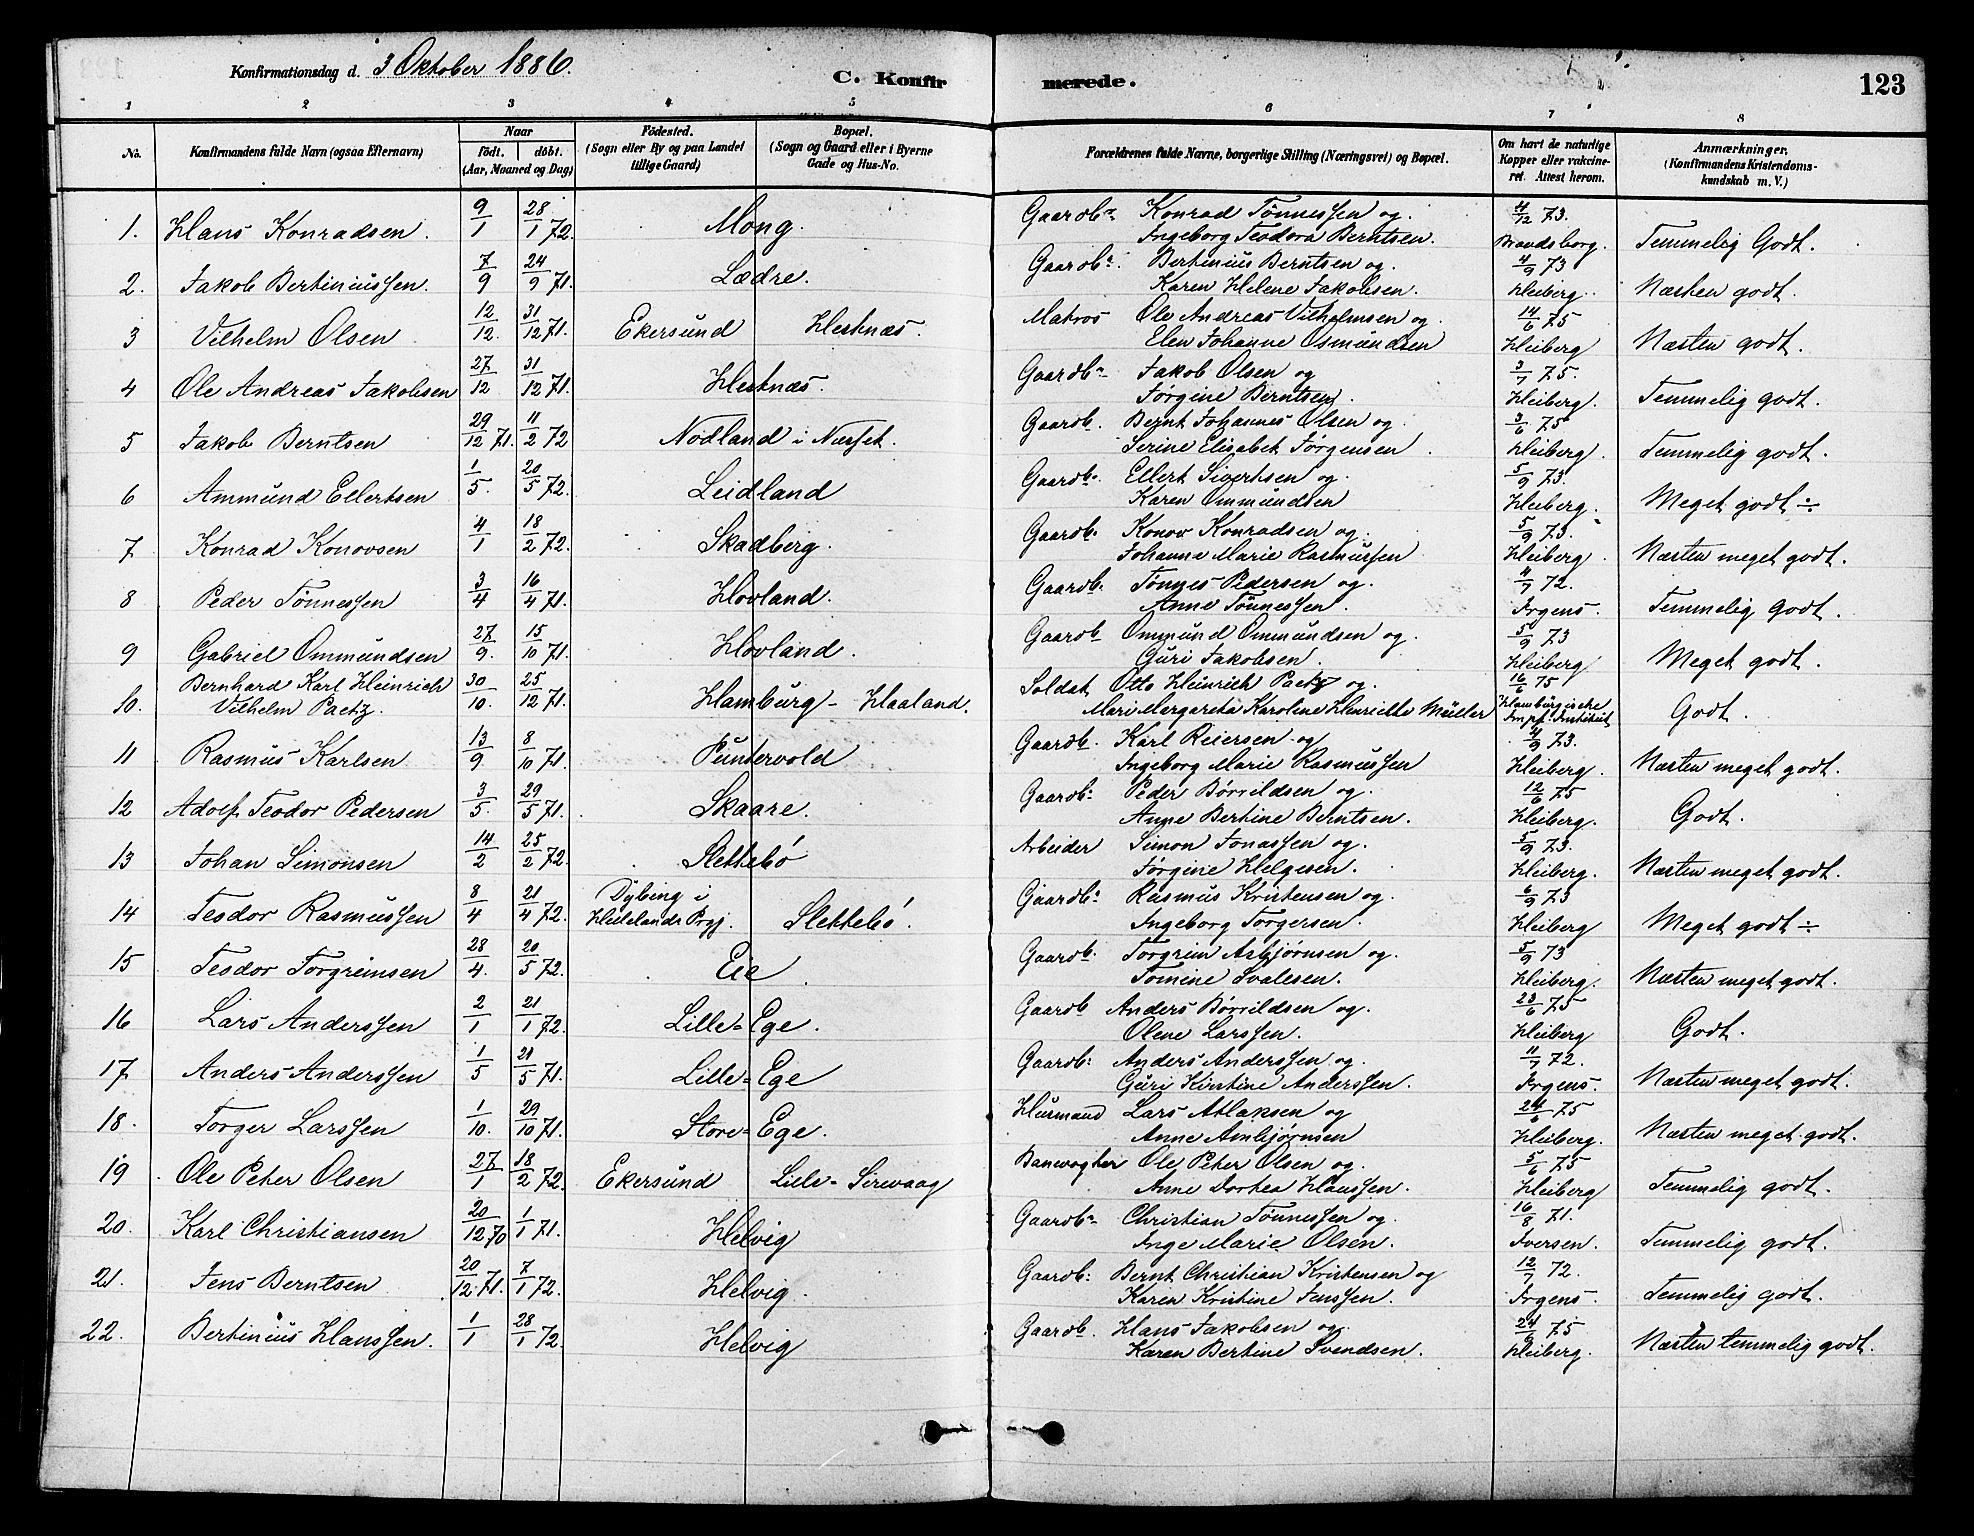 Konfirmationsdag d. 3 Oktober 1886. C. Konfirmerede. 123
1 2 3 4 5 6 7 8
No. Konfirmandens fulde Navn (ogsaa Efternavn) Naar födt. döbt. (Aar, Maaned og Dag) Födested. (Sogn eller By og paa Landet tillige Gaard) Bopæl. (Sogn og Gaard eller i Byerne Gade og Hus-No. Forældrenes fulde Navne, borgerlige Stilling (Næringsvei) og Bopæl. Om havt de naturlige Kopper eller vakcineret. Attest herom. Anmærkninger, (Konfirmandens Kristendomskundskab m. V.)
1. Hans Konradsen. 9/1 28/1 72. Mong. Gaardbr. Konrad Tönnessen og 4/12 73. Temmelig Godt.
Ingeborg Teodora Berntsen. Brandsborg.
2. Jakob Bertiniussen. 7/9 24/9 71. Lædre. Gaardbr. Bertinius Berntsen og 4/9 73 Næsten godt.
Karen Helene Jakobsen. Heiberg.
3 Vilhelm Olsen 12/12. 31/12 71. Ekersund Hestnæs. Matros Ole Andreas Vilhelmsen og 14/6 75 Næsten godt.
Elen Johanne Osmundsen Heiberg
4 Ole Andreas Jakobsen 27/12 31/12 71. Hestnæs. Gaardbr. Jakob Olsen og 3/7 75. Temmelig godt.
Jörgine Berntsen. Heiberg.
5 Jakob Berntsen 29/12 71. 11/2 72 Nodland i Nærset. Gaardb. Bernt Johannes Olsen og 3/6 75 Temmelig godt.
Serine Elisabet Jörgensen. Heiberg.
6 Ammund Ellertsen 1/5. 20/5 72. Leidland Gaardb. Ellert Sivertsen og 5/9 73. Meget godt ÷
Karen Ommundsen Heiberg.
7 Konrad Konovsen 4/1 18/2 72. Skadberg. Gaardb. Konov Konradsen og 5/9 73. Næsten meget godt.
Johanne Marie Rasmussen Heiberg.
8 Peder Tönnessen 3/4 16/4 71. Hovland. Gaardb. Tönnes Pedersen og. 4/7 72. Temmelig godt.
Anne Tönnessen. Irgens.
9 Gabriel Ommundsen 27/9. 15/10 71. Hovland. Gaardb Ommund Ommundsen og 5/9 73 Meget godt.
Guri Jakobsen. Heiberg
10. Bernhard Karl Heinrich Vilhelm Paetz. 30/10. 25/12 71. Hamburg - Haaland. Soldat Otto Heinrich Paetz og. 16/6 75 Godt.
Mari Margareta Karoline Henriette Müller Hamburgische Impf-Institut
11 Rasmus Karlsen 13/9 8/10 71. Puntervold Gaardb. Karl Reiersen og 4/9 73. Næsten meget godt.
Ingeborg Marie Rasmussen Heiberg.
12 Adolf Teodor Pedersen 3/5. 29/5 71. Skaare. Gaardb. Peder Börrildsen og. 12/6 75 Godt.
Anne Bertine Berntsen. Heiberg.
13 Johan Simonsen 14/2 25/2 72. Slettebö Arbeider Simon Jonassen og. 5/9 73. Næsten meget godt.
Jörgine Helgesen. Heiberg.
14 Teodor Rasmussen 8/4 21/4 72. Dybing i Helelands Prgj. Slettebö. Gaardb. Rasmus Kristensen og. 6/9 73 Meget godt ÷
Ingeborg Torgersen. Heiberg
15 Teodor Torgrimsen 28/4. 20/5 72. Eie Gaardb. Torgrim Asbjörnsen og. 5/9 73 Næsten meget godt.
Tomine Svalesen. Heiberg.
16 Lars Anderssen 2/1 21/1 72. Lille-Ege. Gaardb Anders Börrildsen og. 23/6 75 Godt.
Olene Larssen. Heiberg
17 Anders Anderssen 1/5 21/5 71. Lille-Ege Gaardb. Anders Anderssen og. 11/7 72. Næsten meget godt.
Guri Kirstine Anderssen. Irgens.
18. Torger Larssen 1/10. 29/10 71. Store-Ege. Husmand Lars Atlaksen og 24/6 75 Næsten meget godt.
Anne Arnbjörnsen Heiberg.
19 Ole Peter Olsen 27/1 18/2 72. Ekersund Lille-Sirevaag Banevogter Ole Peter Olsen og. 5/6 75 Temmelig godt.
Anne Dortea Hanssen. Heiberg
20. Karl Christiansen 20/12 70 1/1 71. Helvig Gaardb. Christian Tönnessen og 16/8 71. Temmelig godt.
Inge Marie Olsen. Iversen.
21. Jens Berntsen 20/12 71. 7/1 72. Helvig. Gaardb. Bernt Christian Kristensen og 12/7 72. Temmelig godt.
Karen Kristine Jenssen. Irgens.
22. Bertinius Hanssen. 1/1 28/1 72. Helvig Gaardb. Hans Jakobsen og. 24/6 75 Næsten temmelig godt.
Karen Bertine Svendsen. Heiberg.